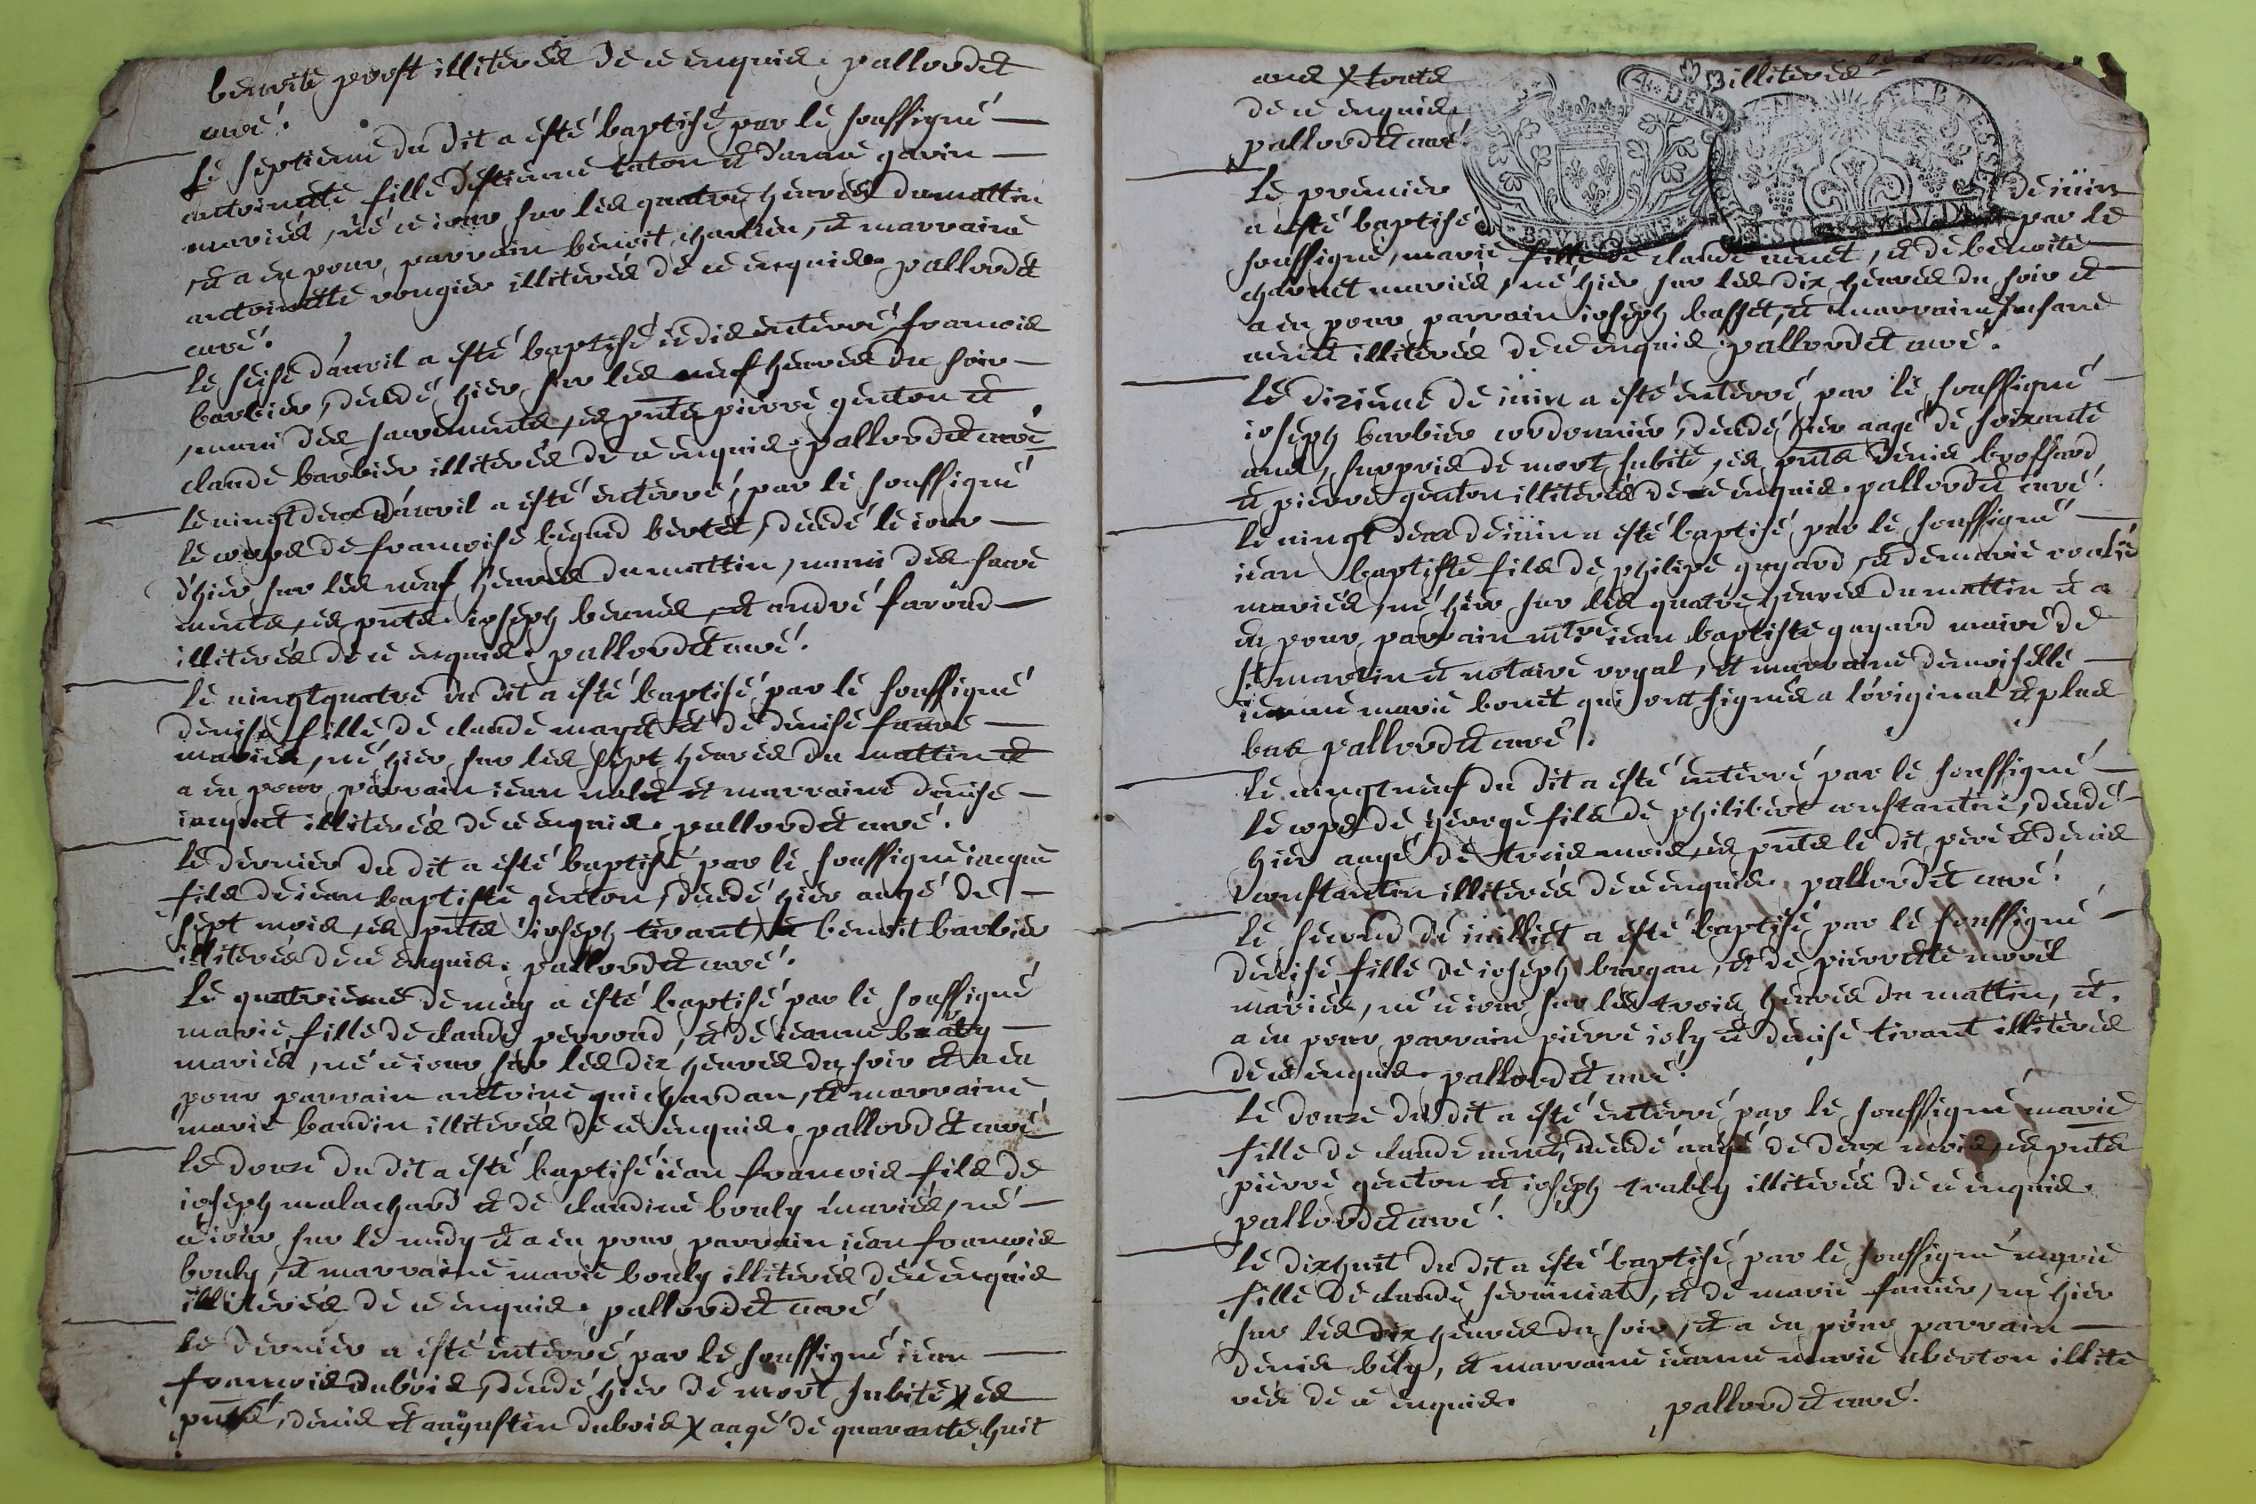 benoite prost illiterés de ce enquis. pallordet
curé.
Le septieme du dit a esté baptisé par le soussigné
antoinette fille d'estienne taton et d'anne gavin
mariés, né ce iour sur les quatre heures du mattin
et a eu pour parrain benoit charlin, et marraine
antoinette rougier illiterés de ce enquis. pallordet
curé.
Le seise d'auril a esté baptisé iedis enterré francois
barbier, decedé hier sur les neuf heures du soir
muni des sacrements, es pnts pierre genton et
claude barbier illiterés de ce enquis. pallordet curé
Le vingt deux d'auril a esté enterré, par le soussigné
le corps de francoise begand bertet, decedé le iour
d'hier sur les neuf heures du mattin, muni des sacre
ments, es pnts. ioseph bernes, et andré favrad
illiterés de ce enquis. pallordet curé.
Le vingtquatre du dit a esté baptisé par le soussigné
denise fille de claude mayet et de denise favre
mariés, né hier sur les sept heures du mattin et
a eu pour parrain iean nolet et marraine denise
iaquet illiterés de ce enquis. pallordet curé.
Le dernier du dit a esté baptisé par le soussigné iacque
fils de iean baptiste genton, decedé hier aagé de
sept mois, es pnts ioseph tirant, et benoit barbier
illiterés de ce enquis. pallordet curé.
Le quatrieme de may a esté baptisé par le soussigné
marie fille de claude perroud, et de ieanne
mariés, né ce iour sur les dix heures du soir et a eu
pour parrain antoine guichardan, et marraine
marie baudin illiterés de ce enquis. pallordet curé
Le douze du dit a esté baptisé iean francois fils de
ioseph malachard et de claudine bouly mariés, né
ce iour sur le midy et a eu pour parrain iean francois
bouly, et marraine marie bouly illiterés de ce enquis
illiterés de ce enquis. pallordet curé
Le dernier a esté enterré par le soussigné iean
francois dubois, decedé hier de mort subite X es
pnts, denis et augustin dubois X aagé de quarante huit
ans X touts illiterés
de ce enquis.
pallordet curé
Le premier de iuin
a esté baptisé par le
soussigné, marie fille de claude munet, et de benoite
charnet mariés, né hier sur les dix heures du soir et
a eu pour parrain ioseph basset, et marraine susane
munet illiterés de ce enquis. pallordet curé.
Le dixieme de iuin a esté enterré par le soussigné
ioseph barbier cordonnier, decedé hier aagé de soixante
ans, surpris de mort subite, es pnts denis brossard
et pierre genton illiterés de ce enquis. pallordet curé.
Le vingt deux de iuin a esté baptisé par le soussigné
iean baptiste fils de philipe guyard, et de marie
mariés, né hier sur les quatre heures du mattin et a
eu pour parrain mtre iean baptiste guyard maire de
st martin et notaire royal, et marraine demoiselle
ieanne marie bonet qui ont signés a l'original et plus
bas pallordet curé.
Le vingtneuf du dit a esté enterré par le soussigné
le corps de george fils de philibert constantin, decedé
hier aagé de trois mois, es pnts le dit pere et denis
constantin illiterés de ce enquis. pallordet curé.
Le second de iuilliet a esté baptisé par le soussigné
denise fille de ioseph burgan, et de pierrette morel
mariés, né ce iour sur les trois heures du mattin, et
a eu pour parrain pierre ioly et denise tirant illiterés
de ce enquis. pallordet curé.
Le douze du dit a esté enterré par le soussigné marie
fille de claude munet, decedé aagé de deux mois, es pnts
pierre genton et ioseph trably illiterés de ce enquis.
pallordet curé.
Le dixhuit du dit a esté baptisé par le soussigné marie
fille de claude, et de marie favier, né hier
sur les dix heures du soir, et a eu pour parrain
denis bely, et marraine ieanne marie berton illite
rés de ce enquis. pallordet curé.